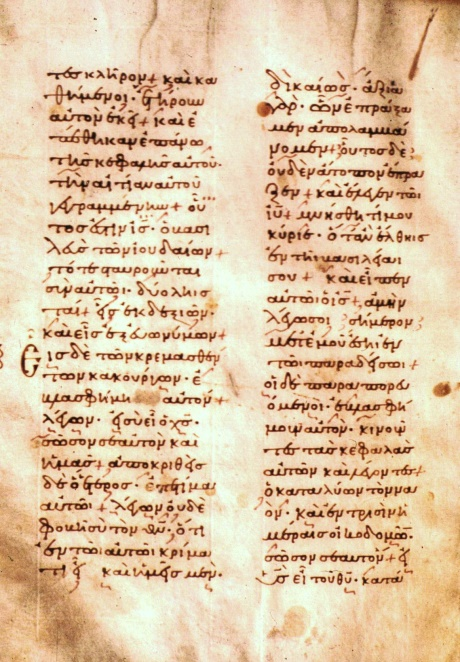 τες κλῆρον + καὶ κα
θήμενοι · ἐτήρουν
αὐτὸν ἐκεῖ + καὶ ἐ
πέθηκαν ἐπάνω
τῆς κεφαλῆς αὐτοῦ ·
τὴν αἰτίαν αὐτοῦ
γεγραμμένην + οὗ
τός ἐστιν ἰς · ὁ βασι
λεὺς τῶν ἰουδαίων +
τότε σταυροῦνται
σὺν αὐτῶι · δύο λῃς
ταί + εἷς ἐκ δεξιῶν ·
καὶ εἷς ἐξ εὐωνύμων +
Εἷς δὲ τῶν κρεμασθέν
των κακούργων · ἐ
βλασφήμει αὐτὸν +
λέγων · εἰ σὺ εἶ ὁ χς ·
σῶσον σεαυτὸν καὶ
ἡμᾶς + ἀποκριθεὶς
δὲ ὁ ἕτερος · ἐπετίμα
αὐτῶι + λέγων οὐδὲ
φοβῆι σὺ τὸν θν · ὅτι
ἐν τῶι αὐτῶι κρίμα
τι εἶ καὶ ἡμεῖς μὲν ·
δικαίως · ἄξια
γὰρ · ὧν ἐπράξα
μεν ἀπολαμβά
νομεν + οὗτος δὲ ·
οὐδὲν ἄτοπον ἔπρα
ξεν + καὶ ἔλεγεν τῶι
ιυ + μνήσθητί μου
κύριε · ὅταν ἔλθηις
ἐν τῆι βασιλείαι
σου + καὶ εἶπεν
αὐτῶι ὁ ις + ἀμὴν
λέγω σοι σήμερον
μετ ἐμοῦ ἔσηι ἐν
τῶι παραδείσωι +
οἱ δὲ παραπορευ
όμενοι · ἐβλασφή
μουν αὐτὸν · κινοῦν
τες τὰς κεφαλὰς
αὐτῶν καὶ λέγοντες +
ὁ καταλύων τὸν να
όν · καὶ ἐν τρισὶν ἡ
μέραις οἰκοδομῶν ·
σῶσον σεαυτόν + εἰ
υς εἶ τοῦ θυ · κατά